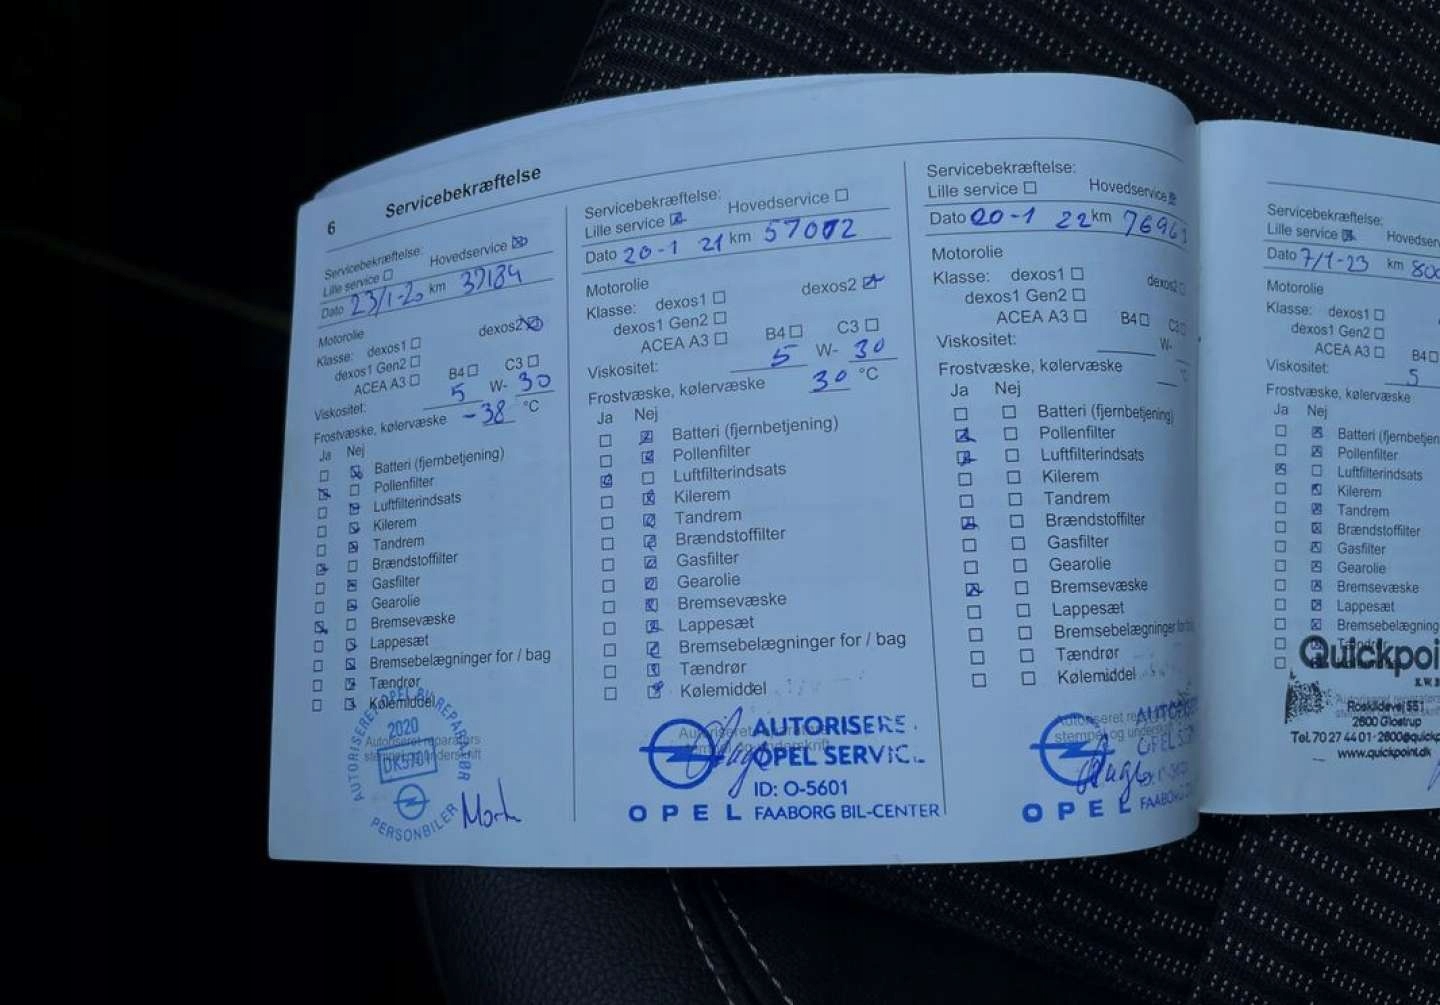 6
Servicebekræftelse
Servicebekræftelse:
Lille service Hovedservice
Dato 23/1-20 km 37184
Motorolie
Klasse: dexos1 dexos2
dexos1 Gen2
ACEA A3 B4 C3
Viskositet: 5 W- 30
Frostvæske, kølervæske -38 °C
Ja Nej
Batteri (fjernbetjening)
Pollenfilter
Luftfilterindsats
Kilerem
Tandrem
Brændstoffilter
Gasfilter
Gearolie
Bremsevæske
Lappesæt
Bremsebelægninger for / bag
Tændrør
Kølemiddel
Autoriseret reparatørs
stempel og underskrift
AUTORISERET OPEL BILREPARATØR
2020
PERSONBILER
Servicebekræftelse:
Lille service Hovedservice
Dato 20-1 21 km 57072
Motorolie
Klasse: dexos1 dexos2
dexos1 Gen2
ACEA A3 B4 C3
Viskositet: 5 W- 30
Frostvæske, kølervæske 30 °C
Ja Nej
Batteri (fjernbetjening)
Pollenfilter
Luftfilterindsats
Kilerem
Tandrem
Brændstoffilter
Gasfilter
Gearolie
Bremsevæske
Lappesæt
Bremsebelægninger for / bag
Tændrør
Kølemiddel
AUTORISERE
OPEL SERVIC
ID: O-5601
OPEL FAABORG BIL-CENTER
Servicebekræftelse:
Lille service Hovedservice
Dato 20-1 22 km 7696
Motorolie
Klasse: dexos1 dexos2
dexos1 Gen2
ACEA A3 B4 C3
Viskositet: W-
Frostvæske, kølervæske °C
Ja Nej
Batteri (fjernbetjening)
Pollenfilter
Luftfilterindsats
Kilerem
Tandrem
Brændstoffilter
Gasfilter
Gearolie
Bremsevæske
Lappesæt
Bremsebelægninger for
Tændrør
Kølemiddel
OPEL FAABORG
Servicebekræftelse:
Lille service Hovedser
Dato 7/1-23 km 800
Motorolie
Klasse: dexos1
dexos1 Gen2
ACEA A3 B4
Viskositet: 5
Frostvæske, kølervæske
Ja Nej
Batteri (fjernbetjen
Pollenfilter
Luftfilterindsats
Kilerem
Tandrem
Brændstoffilter
Gasfilter
Gearolie
Bremsevæske
Lappesæt
Bremsebelægning
Quickpoi
Roskildevej 551
2600 Glostrup
Tel. 70 27 44 01 - 2600@quickp
www.quickpoint.dk